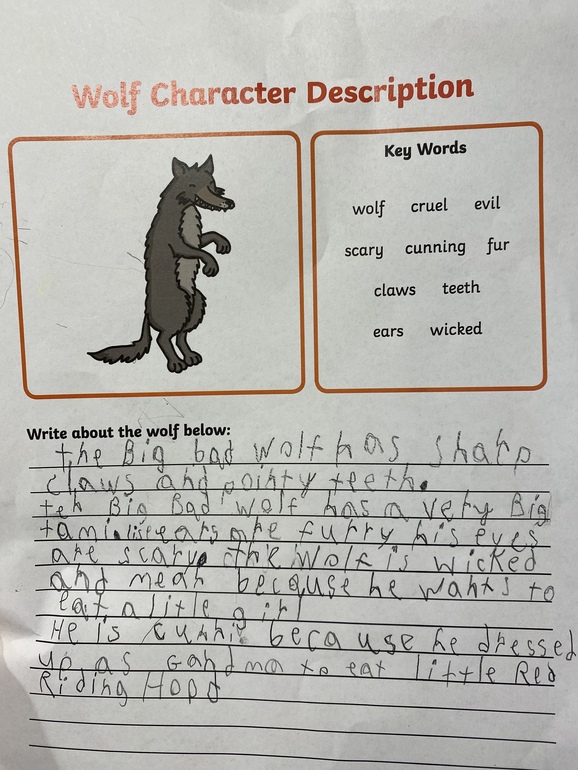 Wolf Character Description
Key Words
wolf cruel evil
scary cunning fur
claws teeth
ears wicked
Write about the wolf below:
the Big bad wolf has sharp
claws and pointy teeth.
teh Big Bad wolf has a very Big
ears are furry his eyes
are scary. the Wolf is wicked
and mean because he wants to
eat a litle girl
He is cunni because he dressed
up as Gandma to eat little Red
Riding Hood